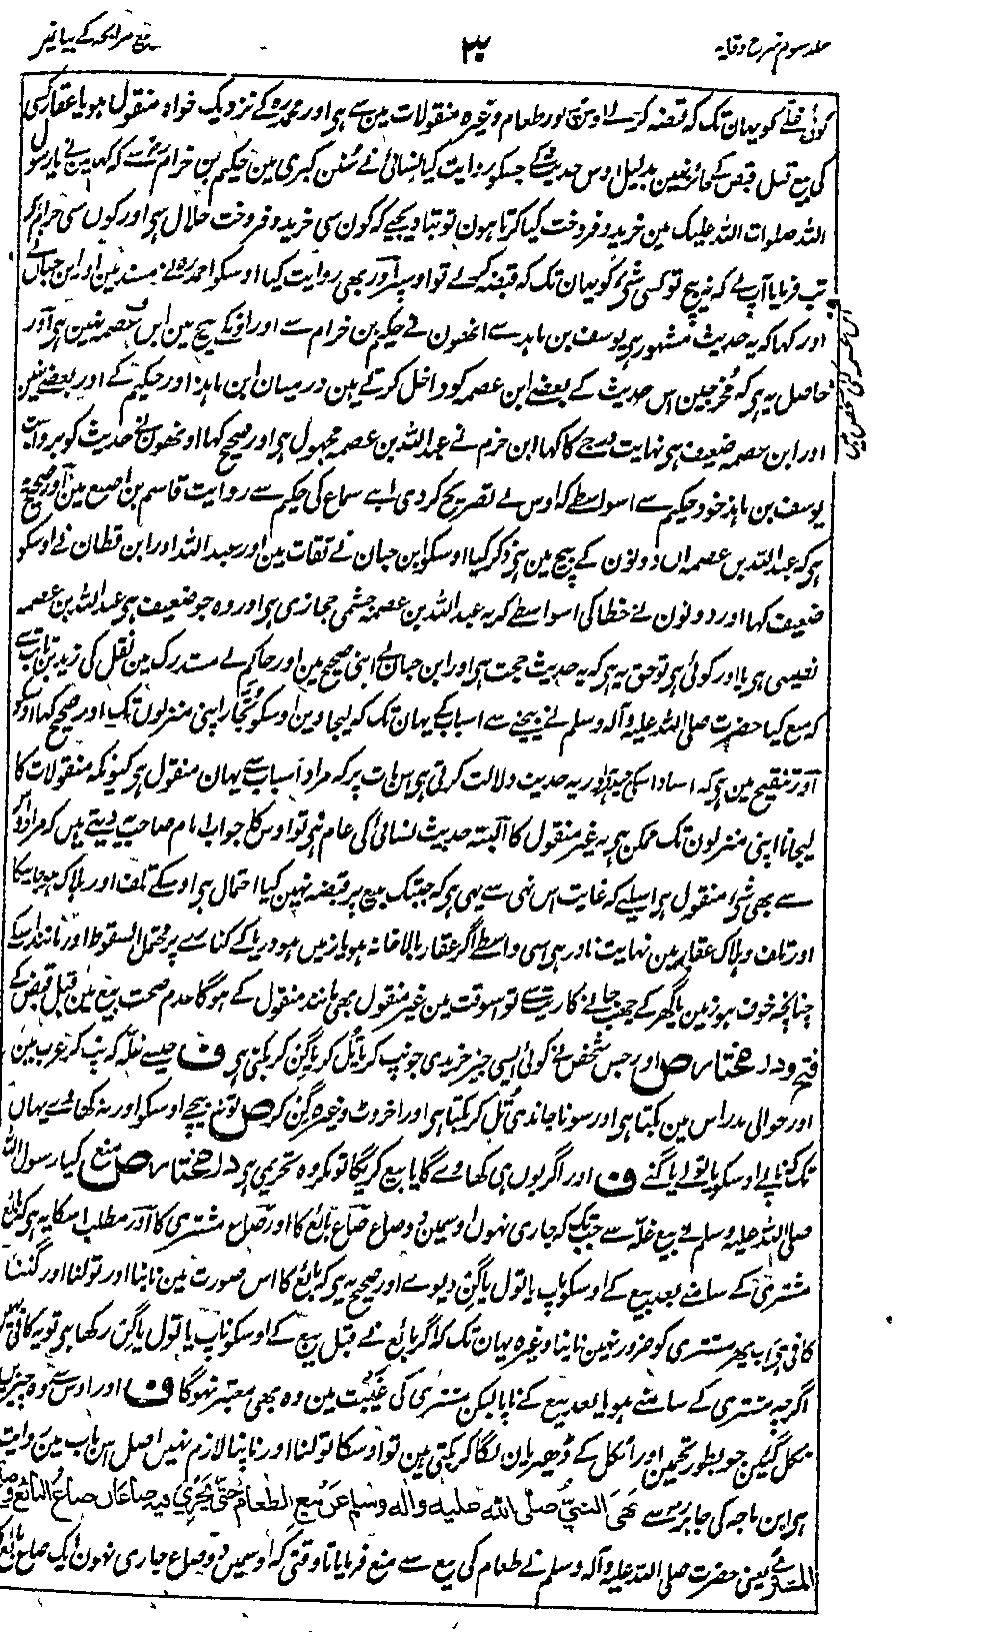 جلد سوم شرح وقایہ
۳۰
بیع مرابحہ کے بیان میں
کوئی غلے کو یہان تک کہ قبضہ کرلے اوسپر اور طعام وغیرہ منقولات مین سے ہی اور محمدرہ کے نزدیک خواہ منقول ہو یا عقار کسی
کی بیع قبل قبض کے جائز نہین بدلیل اوس حدیث کے جسکو روایت کیا نسائی نے سنن کبری مین حکیم بن خرام سے کہ کہا مین نے یا رسول
اللہ صلوات اللہ علیک مین خرید و فروخت کیا کرتا ہون تو بتا دیجیے کہ کون سی خرید و فروخت حلال ہی اور کون سی حرام
تب فرمایا آپ نے کہ نہ بیچ تو کسی شی کو یہان تک کہ قبضہ کرلے تو اوسپر اور بھی روایت کیا اوسکو احمدرہ نے مسند مین اور ابن حبان نے
اور کہا کہ یہ حدیث مشہور ہی یوسف بن ماہد سے انھون نے حکیم بن خرام سے اور اونکے بیچ مین ابن عصمہ نہین ہی اور
حاصل یہ ہی کہ مخرجین اس حدیث کے بعضے ابن عصمہ کو داخل کرتے ہین درمیان ابن ماہد اور حکیم کے اور بعضے نہین
اور ابن عصمہ ضعیف ہی نہایت درجے کا کہا ابن حزم نے عبداللہ بن عصمہ مجہول ہی اور صحیح کہا اونھون نے حدیث کو بروایت
یوسف بن ماہد خود حکیم سے اسواسطے کہ اوس نے تصریح کردی اپنے سماع کی حکیم سے روایت قاسم بن اصبغ مین اور صحیح یہ
ہی کہ عبداللہ بن عصمہ ان دونون کے بیچ مین ہی ذکر کیا اوسکو ابن حبان نے ثقات مین اور عبداللہ اور ابن قطان نے اوسکو
ضعیف کہا اور دونون نے خطا کی اسواسطے کہ یہ عبداللہ بن عصمہ جشمی حجازی ہی اور وہ جو ضعیف ہی عبداللہ بن عصمہ
نصیبی ہی یا اور کوئی ہی تو حق یہ ہی کہ یہ حدیث حجت ہی اور ابن حبان نے اپنی صحیح مین اور حاکم نے مستدرک مین نقل کی زید بن ثابت سے
کہ منع کیا حضرت صلی اللہ علیہ وآلہ وسلم نے بیچنے سے اسباب کے یہان تک کہ لیجاوین اوسکو تجار اپنی منزلون تک اور صحیح کہا اوسکو
اور تنقیح مین ہی کہ اسناد اسکی جید ہی اور یہ حدیث دلالت کرتی ہی اس بات پر کہ مراد اسباب سے یہان منقول ہی کیونکہ منقولات کا
لیجانا اپنی منزلون تک ممکن ہی نہ غیر منقول کا البتہ حدیث نسائی کی عام ہی تو اوس کا جواب امام صاحب یہ دیتے ہین کہ مراد اوس
سے بھی شی منقول ہی اسلیے کہ غایت اس نہی سے یہی ہی کہ جبتک بیع پر قبضہ نہین کیا احتمال ہی اوسکے تلف اور ہلاک ہوجانیکا
اور تلف و ہلاک عقار مین نہایت نادر ہی اسی واسطے اگر عقار بالاخانہ ہو یا زمین ہو دریا کے کنارے پر محتمل السقوط اور مانند اسکے
چنانچہ خوف ہو زمین یا گھر کے چھپ جانے کا ریت سے تو اسوقت مین غیر منقول بھی مانند منقول کے ہوگا عدم صحت بیع مین قبل قبض کے
فتح و در مختار ص اور جس شخص نے کوئی ایسی چیز خریدی جو نپ کر یا تل کر یا گن کر بکتی ہی ف جیسے غلہ کہ نپ کر عرب مین
اور حوالی مدراس مین بکتا ہی اور سونا چاندی تل کر بکتا ہی اور اخروٹ وغیرہ گن کر ص تو نہ بیچے اوسکو اور نہ کھاوے یہان
تک کہ ناپے اوسکو یا تولے یا گنے ف اور اگر یون ہی کھاوے گا یا بیع کریگا تو مکروہ تحریمی ہی در مختار ص منع کیا رسول اللہ
صلی اللہ علیہ وسلم نے بیع غلہ سے جبتک کہ جاری نہون اوسمین دو صاع صاع بائع کا اور صاع مشتری کا اور مطلب اسکا یہ ہی کہ بائع
مشتری کے سامنے بعد بیع کے اوسکو ناپ یا تول یا گن دیوے اور صحیح یہ ہی کہ بائع کا اس صورت مین ناپنا اور تولنا اور گننا
کافی ہی اب پھر مشتری کو ضرور نہین ناپنا وغیرہ یہان تک کہ اگر بائع نے قبل بیع کے اوسکو ناپ یا تول یا گن رکھا ہی تو یہ کافی نہین
اگرچہ مشتری کے سامنے ہو یا بعد بیع کے ناپا لیکن مشتری کی غیبت مین وہ بھی معتبر نہوگا ف اور اوس سے وہ چیزین
نکل گئین جو بطور تخمین اور اٹکل کے ڈھیریان لگا کر بکتی ہین تو اوسکا تولنا اور ناپنا لازم نہین اصل اس باب مین روایت
ہی ابن ماجہ کی جابر سے نَھَی النبیُّ صلی اللہ علیہ وآلہ وسلم عَن بیع الطعام حَتّٰی یَجْرِیَ فیہ صاعَان صاعُ البائع وصاع
المشتری یعنی حضرت صلی اللہ علیہ وآلہ وسلم نے طعام کی بیع سے منع فرمایا تا وقتی کہ اوسمین دو صاع جاری نہون ایک صاع بائع